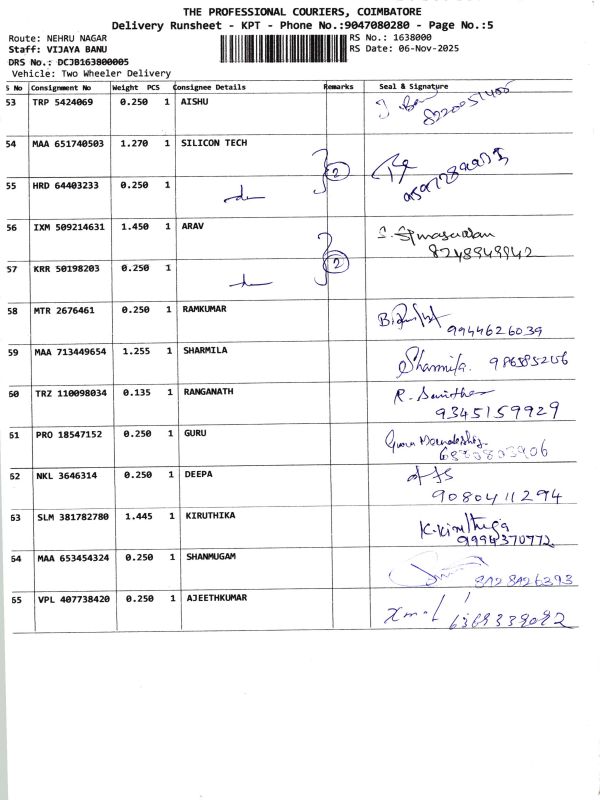 THE PROFESSIONAL COURIERS, COIMBATORE
Delivery Runsheet - KPT - Phone No.:9047080280 - Page No.:5
Route: NEHRU NAGAR RS No.: 1638000
Staff: VIJAYA BANU RS Date: 06-Nov-2025
DRS No.: DCJB163800005
Vehicle: Two Wheeler Delivery
S No Consignment No Weight PCS Consignee Details Remarks Seal & Signature
53 TRP 5424069 0.250 1 AISHU
54 MAA 651740503 1.270 1 SILICON TECH
2
55 HRD 64403233 0.250 1
56 IXM 509214631 1.450 1 ARAV
8248949942
2
57 KRR 50198203 0.250 1
58 MTR 2676461 0.250 1 RAMKUMAR
9944626039
59 MAA 713449654 1.255 1 SHARMILA Sharmila.
60 TRZ 110098034 0.135 1 RANGANATH R.
9345159929
61 PRO 18547152 0.250 1 GURU
62 NKL 3646314 0.250 1 DEEPA
9080411294
63 SLM 381782780 1.445 1 KIRUTHIKA
9994370772
64 MAA 653454324 0.250 1 SHANMUGAM
65 VPL 407738420 0.250 1 AJEETHKUMAR